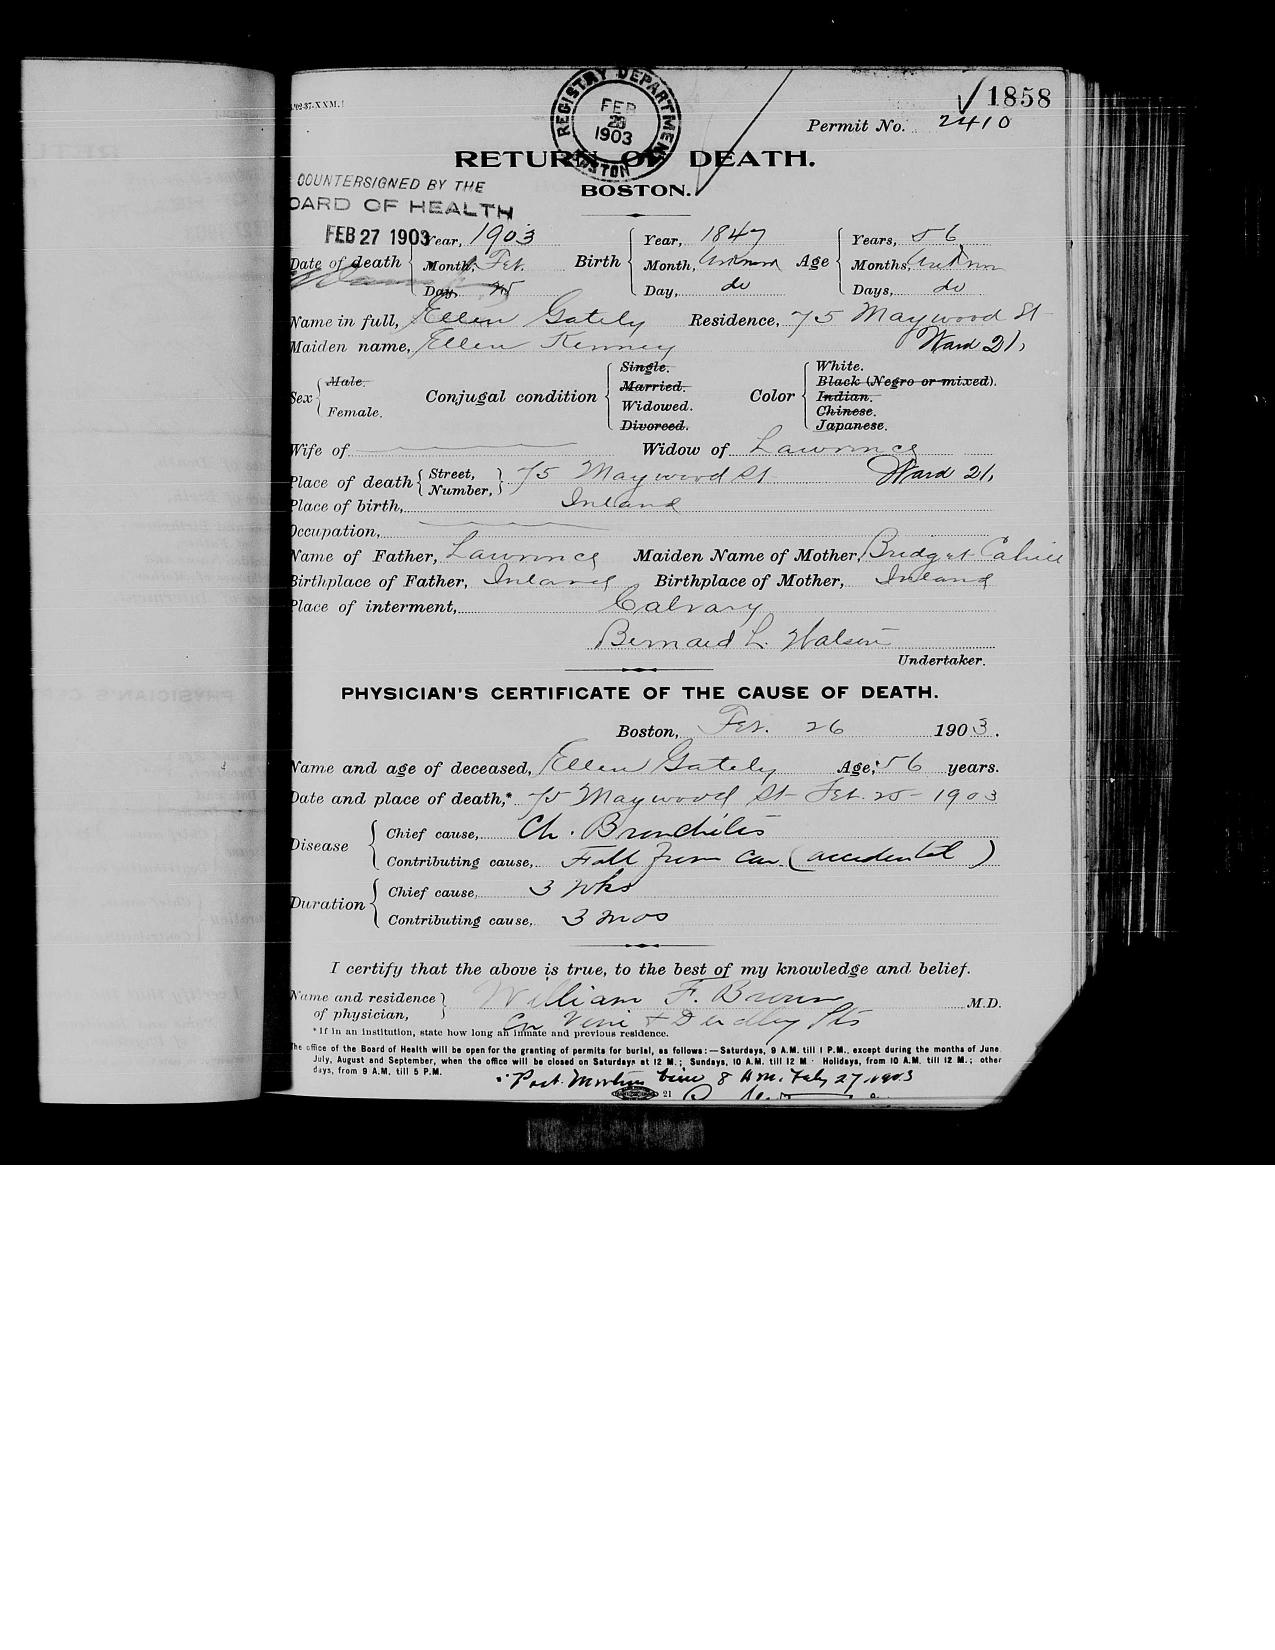 1858
Permit No. 2410
REGISTRY DEPARTMENT
FEB
1903
BOSTON
RETURN OF DEATH.
BOSTON.
COUNTERSIGNED BY THE
OARD OF HEALTH
FEB 27 1903
Date of death Year, 1903 Month, Feb. Day, 25 Birth Year, 1847 Month, Unknown Day, do Age Years, 56 Months, Unknown Days, do
Name in full, Ellen Gately Residence, 75 Maywood St
Maiden name, Ellen Kenney Ward 21,
Sex Male. Female. Conjugal condition Single. Married. Widowed. Divorced. Color White. Black (Negro or mixed). Indian. Chinese. Japanese.
Wife of Widow of Lawrence
Place of death Street, Number, 75 Maywood St Ward 21,
Place of birth, Ireland
Occupation,
Name of Father, Lawrence Maiden Name of Mother, Bridget Cahill
Birthplace of Father, Ireland Birthplace of Mother, Ireland
Place of interment, Calvary
Bernard L.
Undertaker.
PHYSICIAN'S CERTIFICATE OF THE CAUSE OF DEATH.
Boston, Feb. 26 1903.
Name and age of deceased, Ellen Gately Age, 56 years.
Date and place of death,* 75 Maywood St Feb. 25 - 1903
Disease Chief cause, Ch. Bronchitis
Contributing cause, Fall from Car. (accidental)
Duration Chief cause, 3 wks
Contributing cause, 3 mos
I certify that the above is true, to the best of my knowledge and belief.
Name and residence of physician, William F. Brown M.D.
Cor Vine & Dudley Sts
*If in an institution, state how long an inmate and previous residence.
The office of the Board of Health will be open for the granting of permits for burial, as follows:—Saturdays, 9 A.M. till 1 P.M., except during the months of June,
July, August and September, when the office will be closed on Saturdays at 12 M.; Sundays, 10 A.M. till 12 M. Holidays, from 10 A.M. till 12 M.; other
days, from 9 A.M. till 5 P.M.
Post Mortem 8 A.M. Feby 27, 1903
21